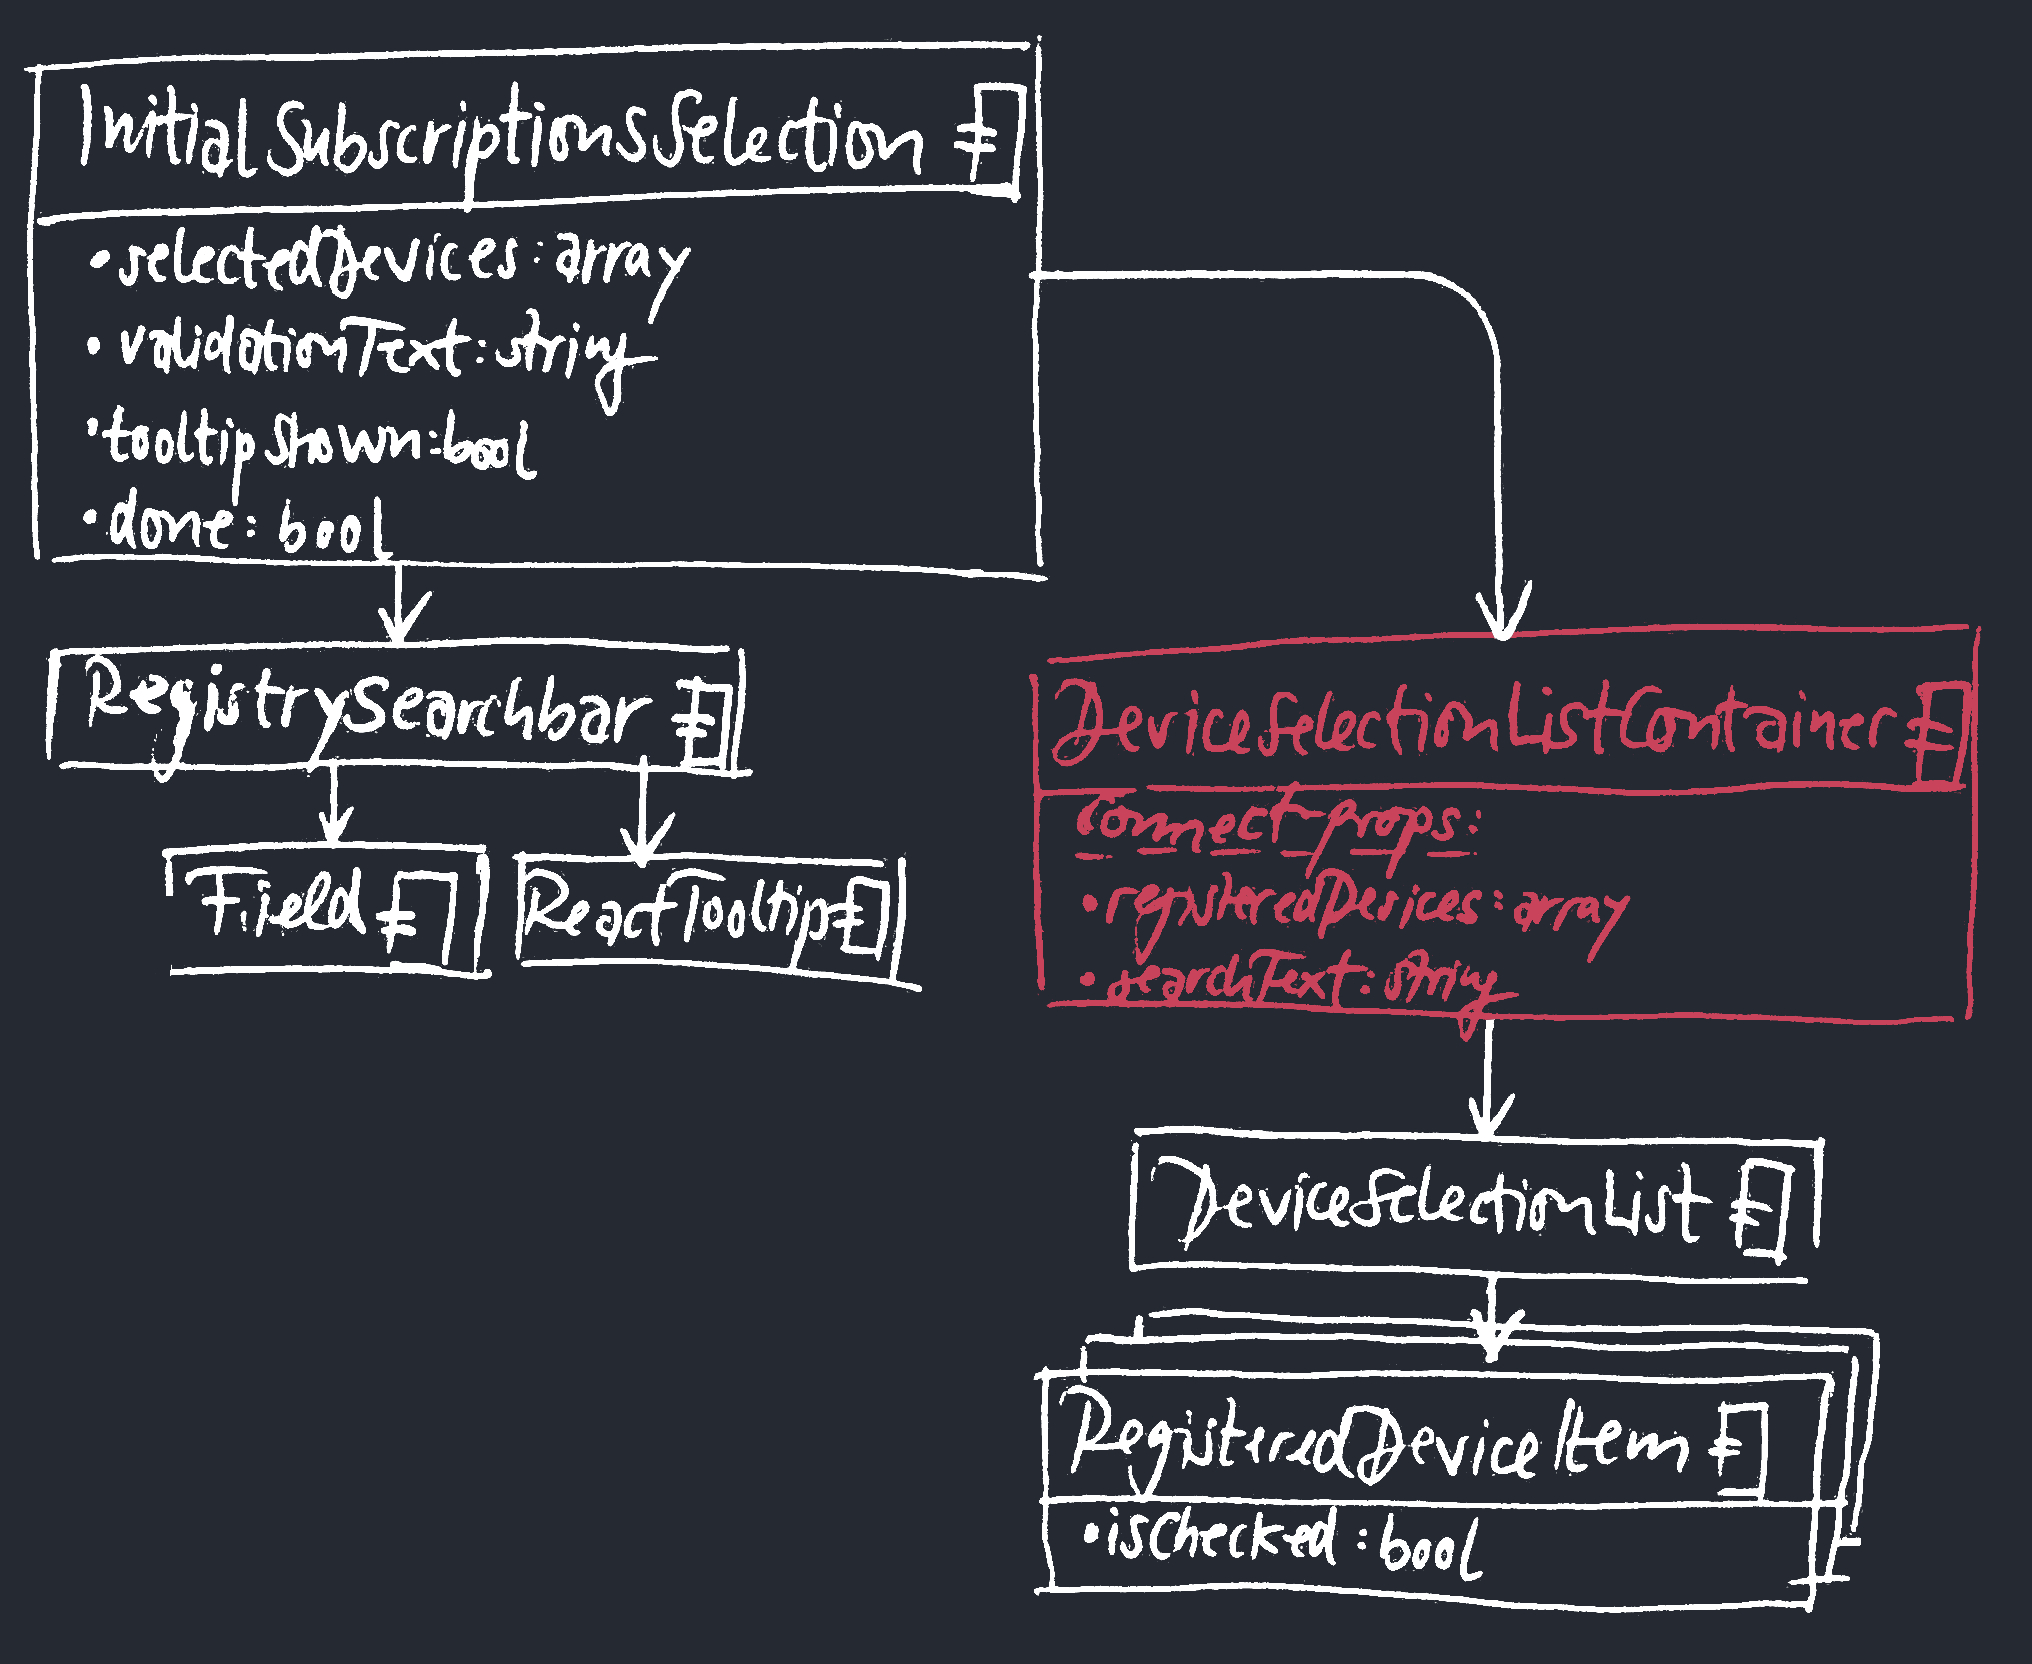 InitialSubscriptionsSelection
• selectedDevices: array
• validationText: string
• tooltipShown: bool
• done: bool
RegistrySearchbar
Field
ReactTooltip
DeviceSelectionListContainer
connect-props:
• registeredDevices: array
• searchText: string
DeviceSelectionList
RegisteredDeviceItem
• isChecked: bool